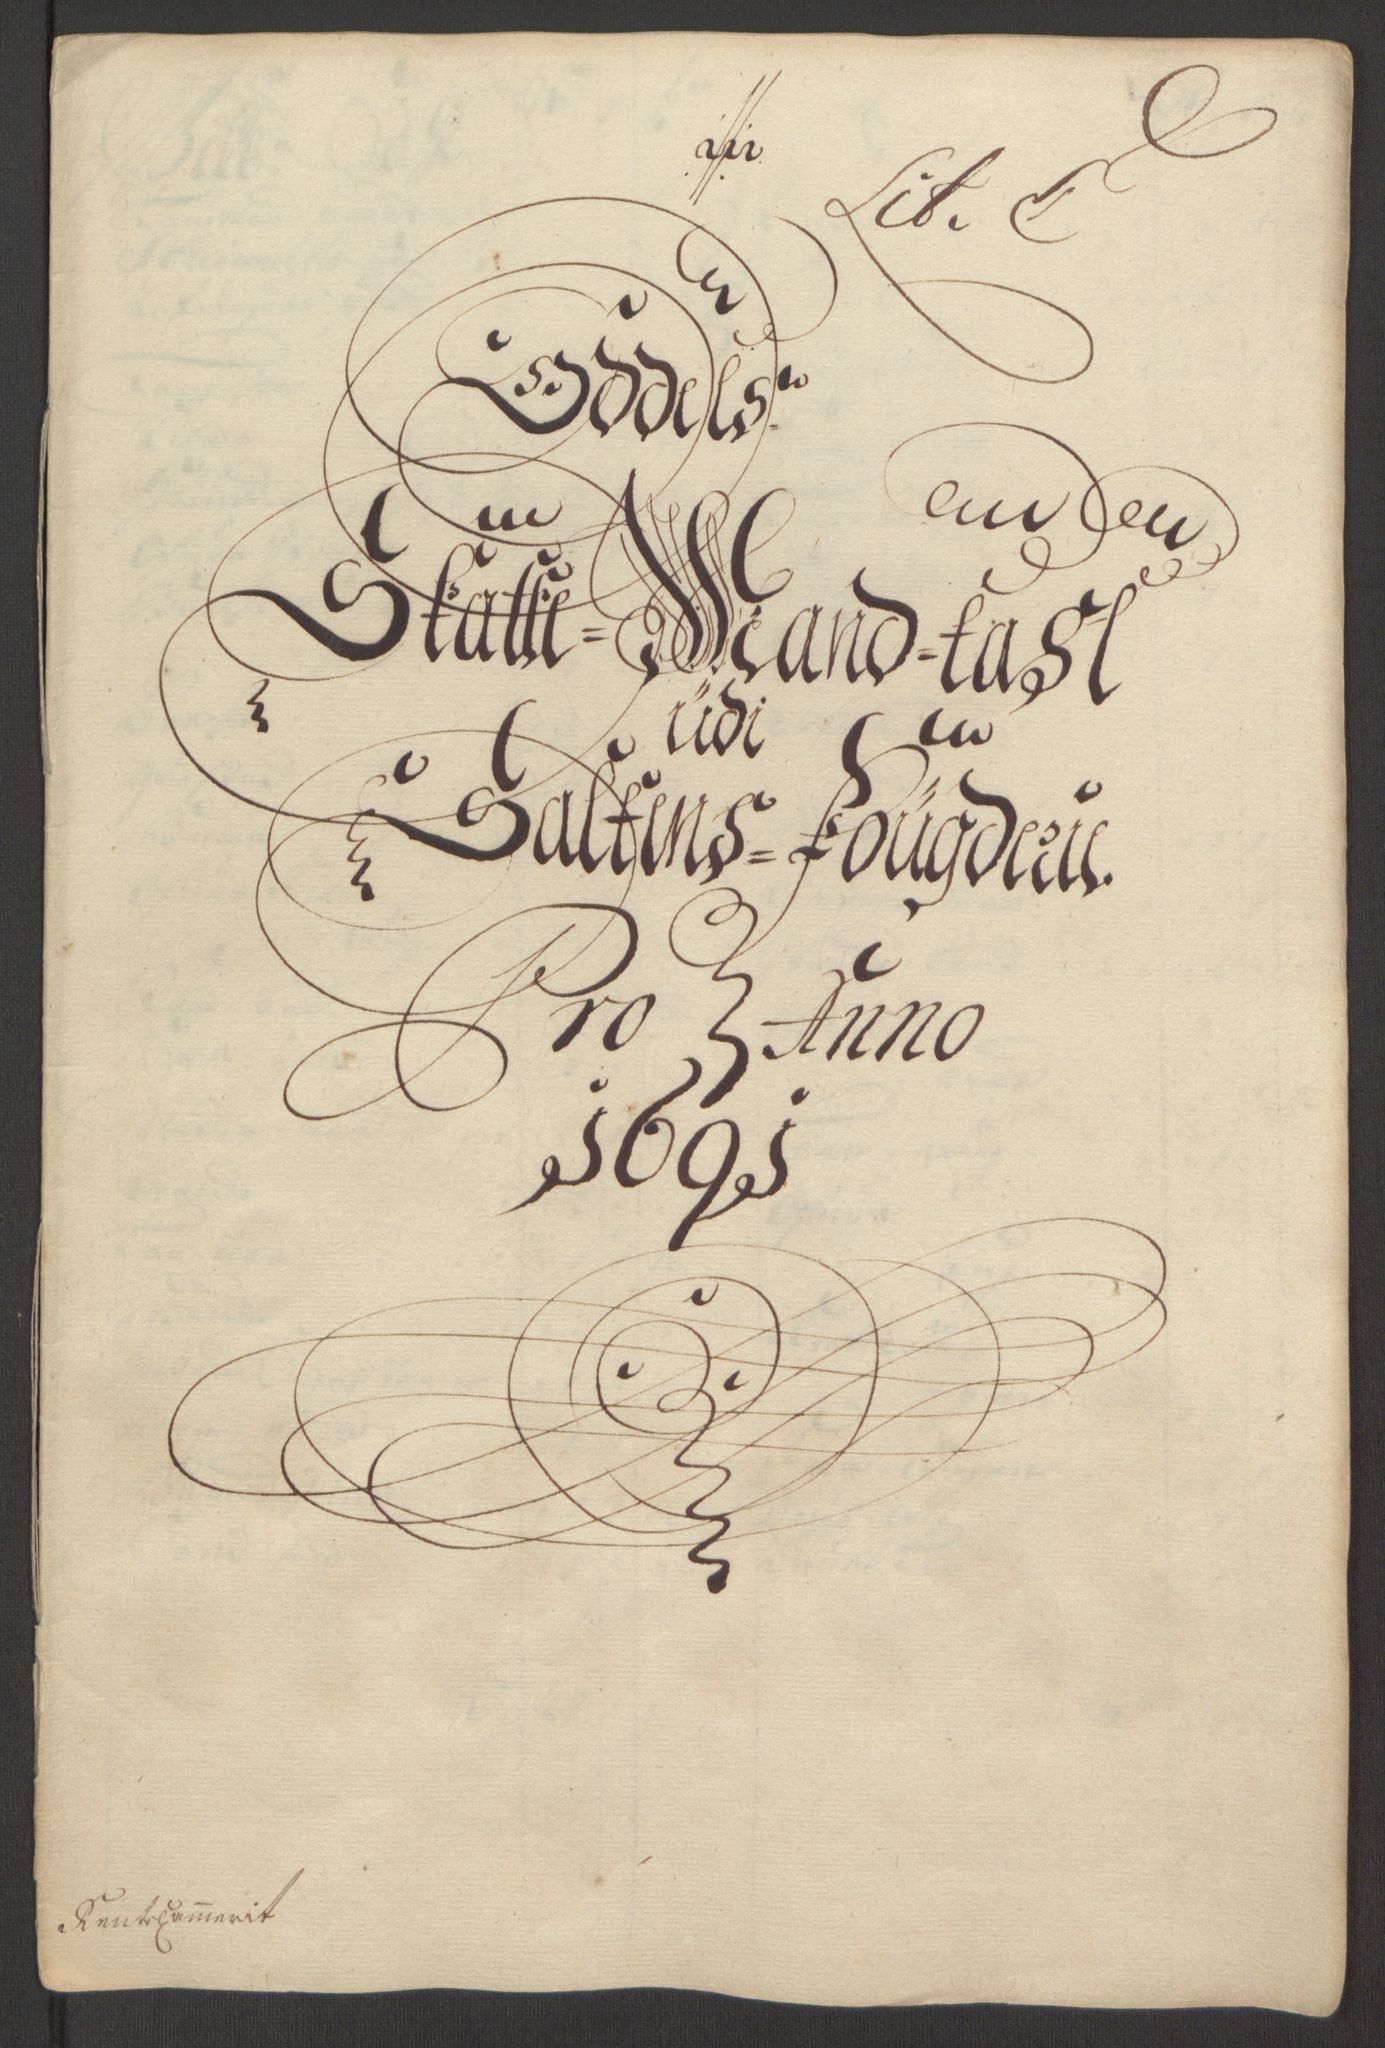 Lit. C
Oddels
Skatte-Mand-tall
udi
Saltens-fougderie.
Pro Anno
1691
RenteCammerit